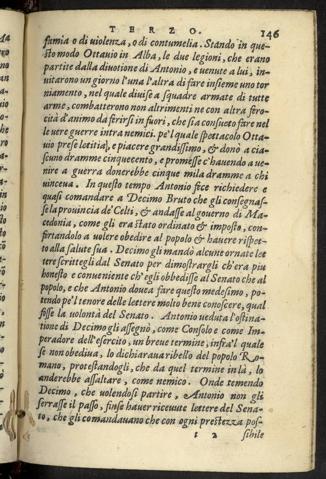 TERZO. 146
famia o di violenza, o di contumelia. Stando in que-
sto modo Ottauio in Alba, le due legioni, che erano
partite dalla diuotione di Antonio, e uenute a lui, in-
uitarono un giorno l'una l'altra di fare insieme uno tor
niamento, nel quale diuise a squadre armate di tutte
arme, combatterono non altrimenti ne con altra fero-
cità d'animo da ferirsi in fuori, che sia consueto fare nel
le uere guerre intra nemici. pe'l quale spettacolo Otta-
uio prese letitia, e piacere grandissimo, & donò a cia-
scuno dramme cinquecento, e promesse c'hauendo a ue-
nire a guerra donerebbe cinque mila dramme a chi
uinceua. In questo tempo Antonio fice richiedere e
quasi comandare a Decimo Bruto che gli consegnas-
se la prouincia de' Celti, & andasse al gouerno di Ma-
cedonia, come gli era stato ordinato & imposto, con-
firtandolo a uolere obedire al popolo & hauere rispet-
to alla salute sua. Decimo gli mandò alcune ornate let
tere scrittegli dal Senato per dimostrargli ch'era piu
honesto e conueniente ch'egli obbedisse al Senato che al
popolo, e che Antonio douea fare questo medesimo, po-
tendo pe'l tenore delle lettere molto bene conoscere, qual
fosse la uolontà del Senato. Antonio ueduta l'ostina-
tione di Decimo gli assegnò, come Consolo e come Im-
peradore dell'esercito, un breue termine, infra'l quale
se non obediua, lo dichiaraua ribello del popolo Ro-
mano, protestandogli, che da quel termine in là, lo
anderebbe assaltare, como nemico. Onde temendo
Decimo, che uolendosi partire, Antonio non gli
serrasse il passo, finse hauer riceuute lettere del Sena-
to, che gli comandauano che con ogni prestezza pos-
s 2 sibile